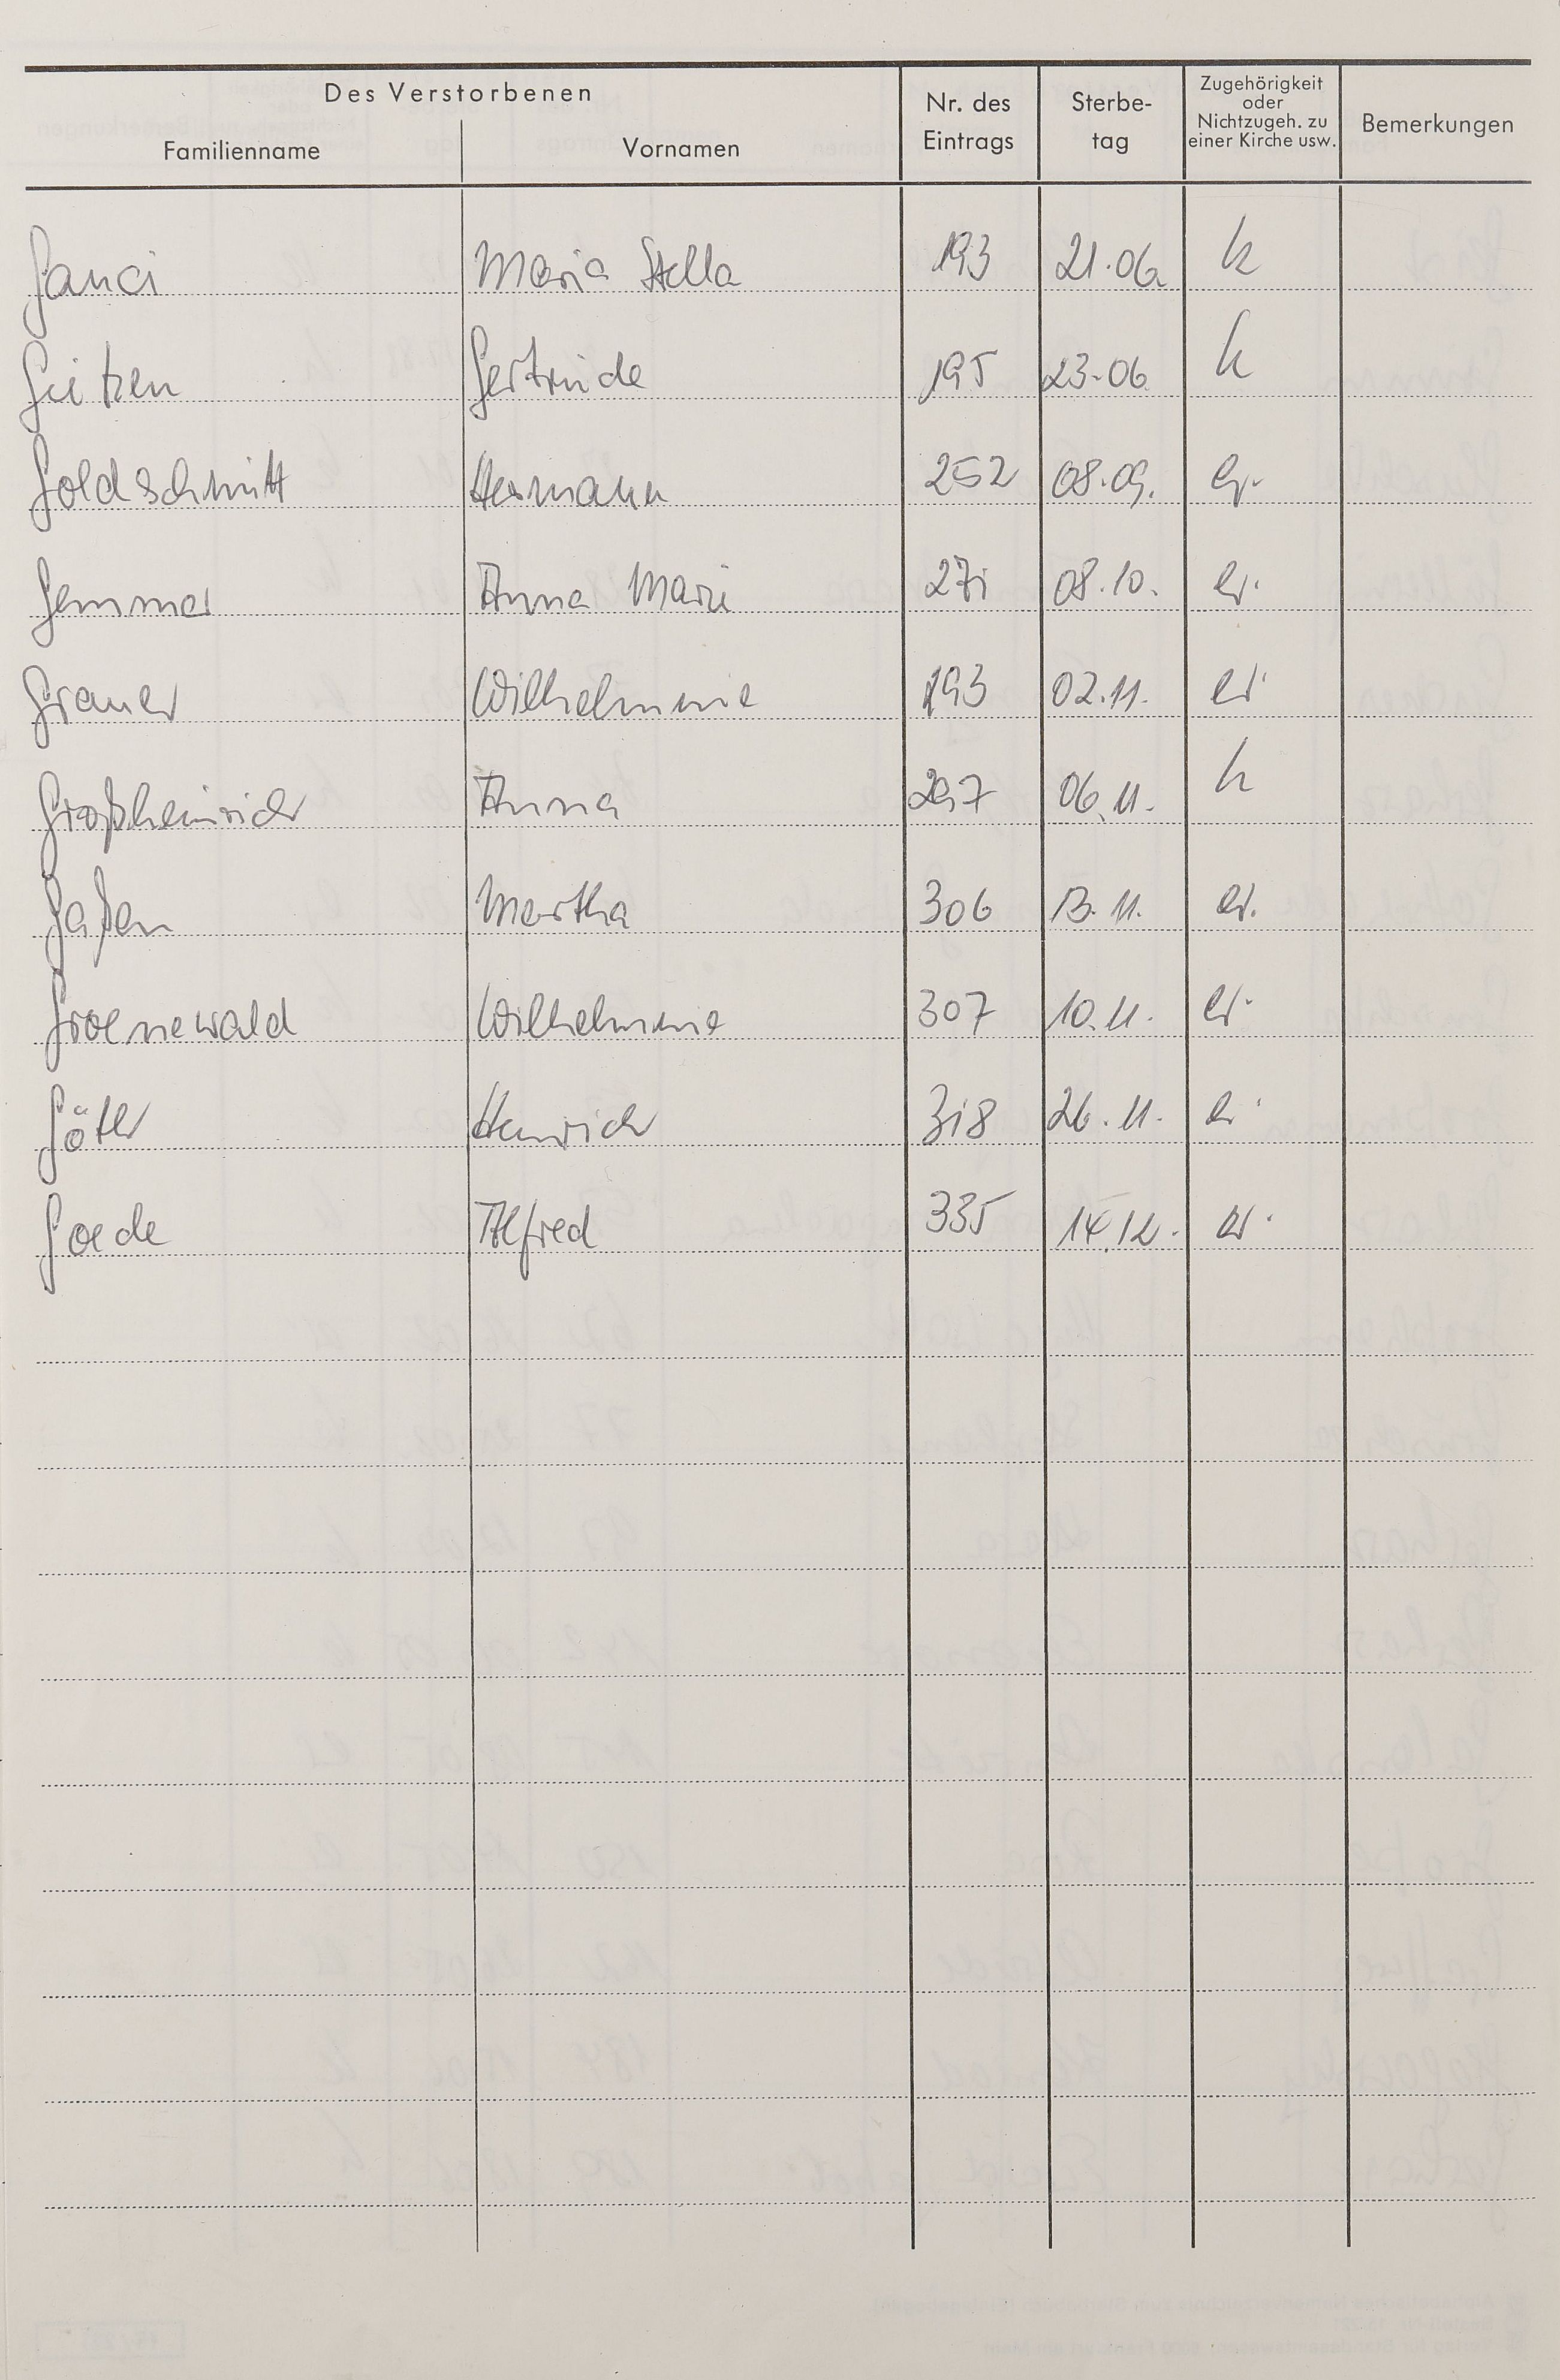 Des Verstorbenen
Familienname Vornamen Nr. des Eintrags Sterbe-tag Zugehörigkeit oder Nichtzugeh. zu einer Kirche usw. Bemerkungen
Ganci Maria Stella 193 21.06. k
Gietzen Gertrude 195 23.06. k
Goldschmitt Hermann 252 08.09. ev.
Gemmer Anna Marie 271 08.10. ev.
Grauer Wilhelmine 293 02.11. ev.
Großheinrich Anna 297 06.11. k
Gaßen Martha 306 13.11. ev.
Groenewald Wilhelmine 307 10.11. ev.
Göttr Heinrich 318 26.11. ev.
Goede Alfred 335 14.12. ev.